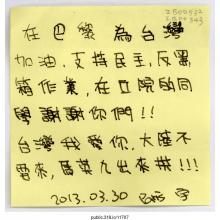 2B00532
2B00343
在巴黎為台灣
加油,支持民主,反黑
箱作業,在立院的同
學謝謝你們!!
台灣我愛你,大陸不
要來,馬英九出來拼!!!
2013.03.30
public.318.io/11787